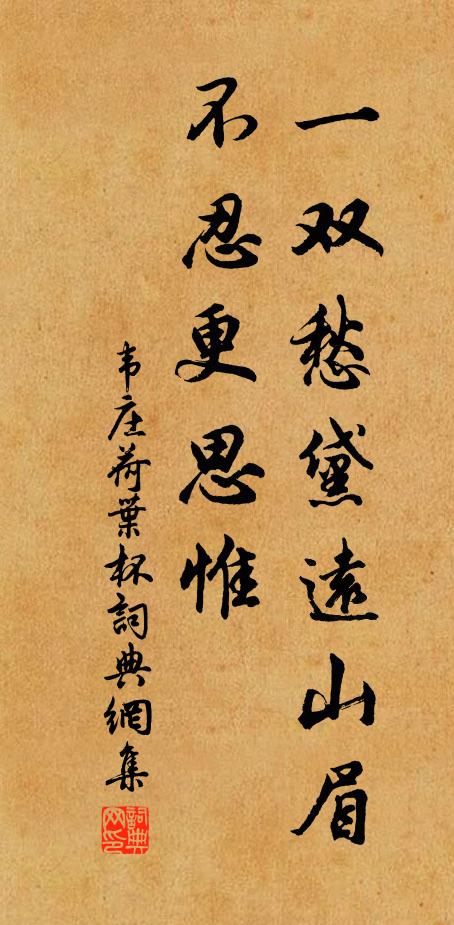 一双愁黛遠山眉
不忍更思惟
韦庄荷葉杯詞典網集
詞典网印